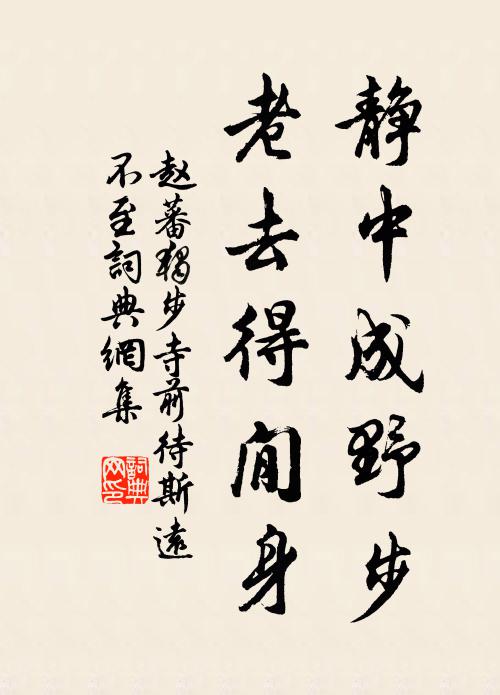 静中成野步
老去得閒身
赵蕃獨步寺前待斯遠
不至詞典網集
詞典网印